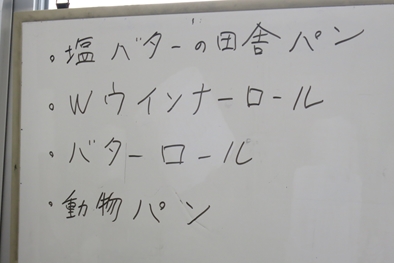 ・塩バターの田舎パン
・Wウインナーロール
・バターロール
・動物パン